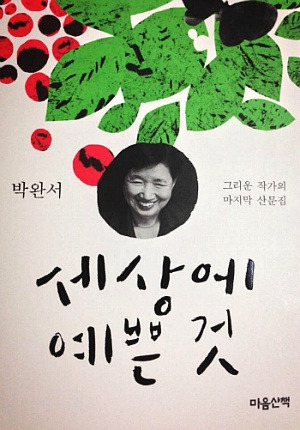 박완서
그리운 작가의
마지막 산문집
세상에
예쁜 것
마음산책